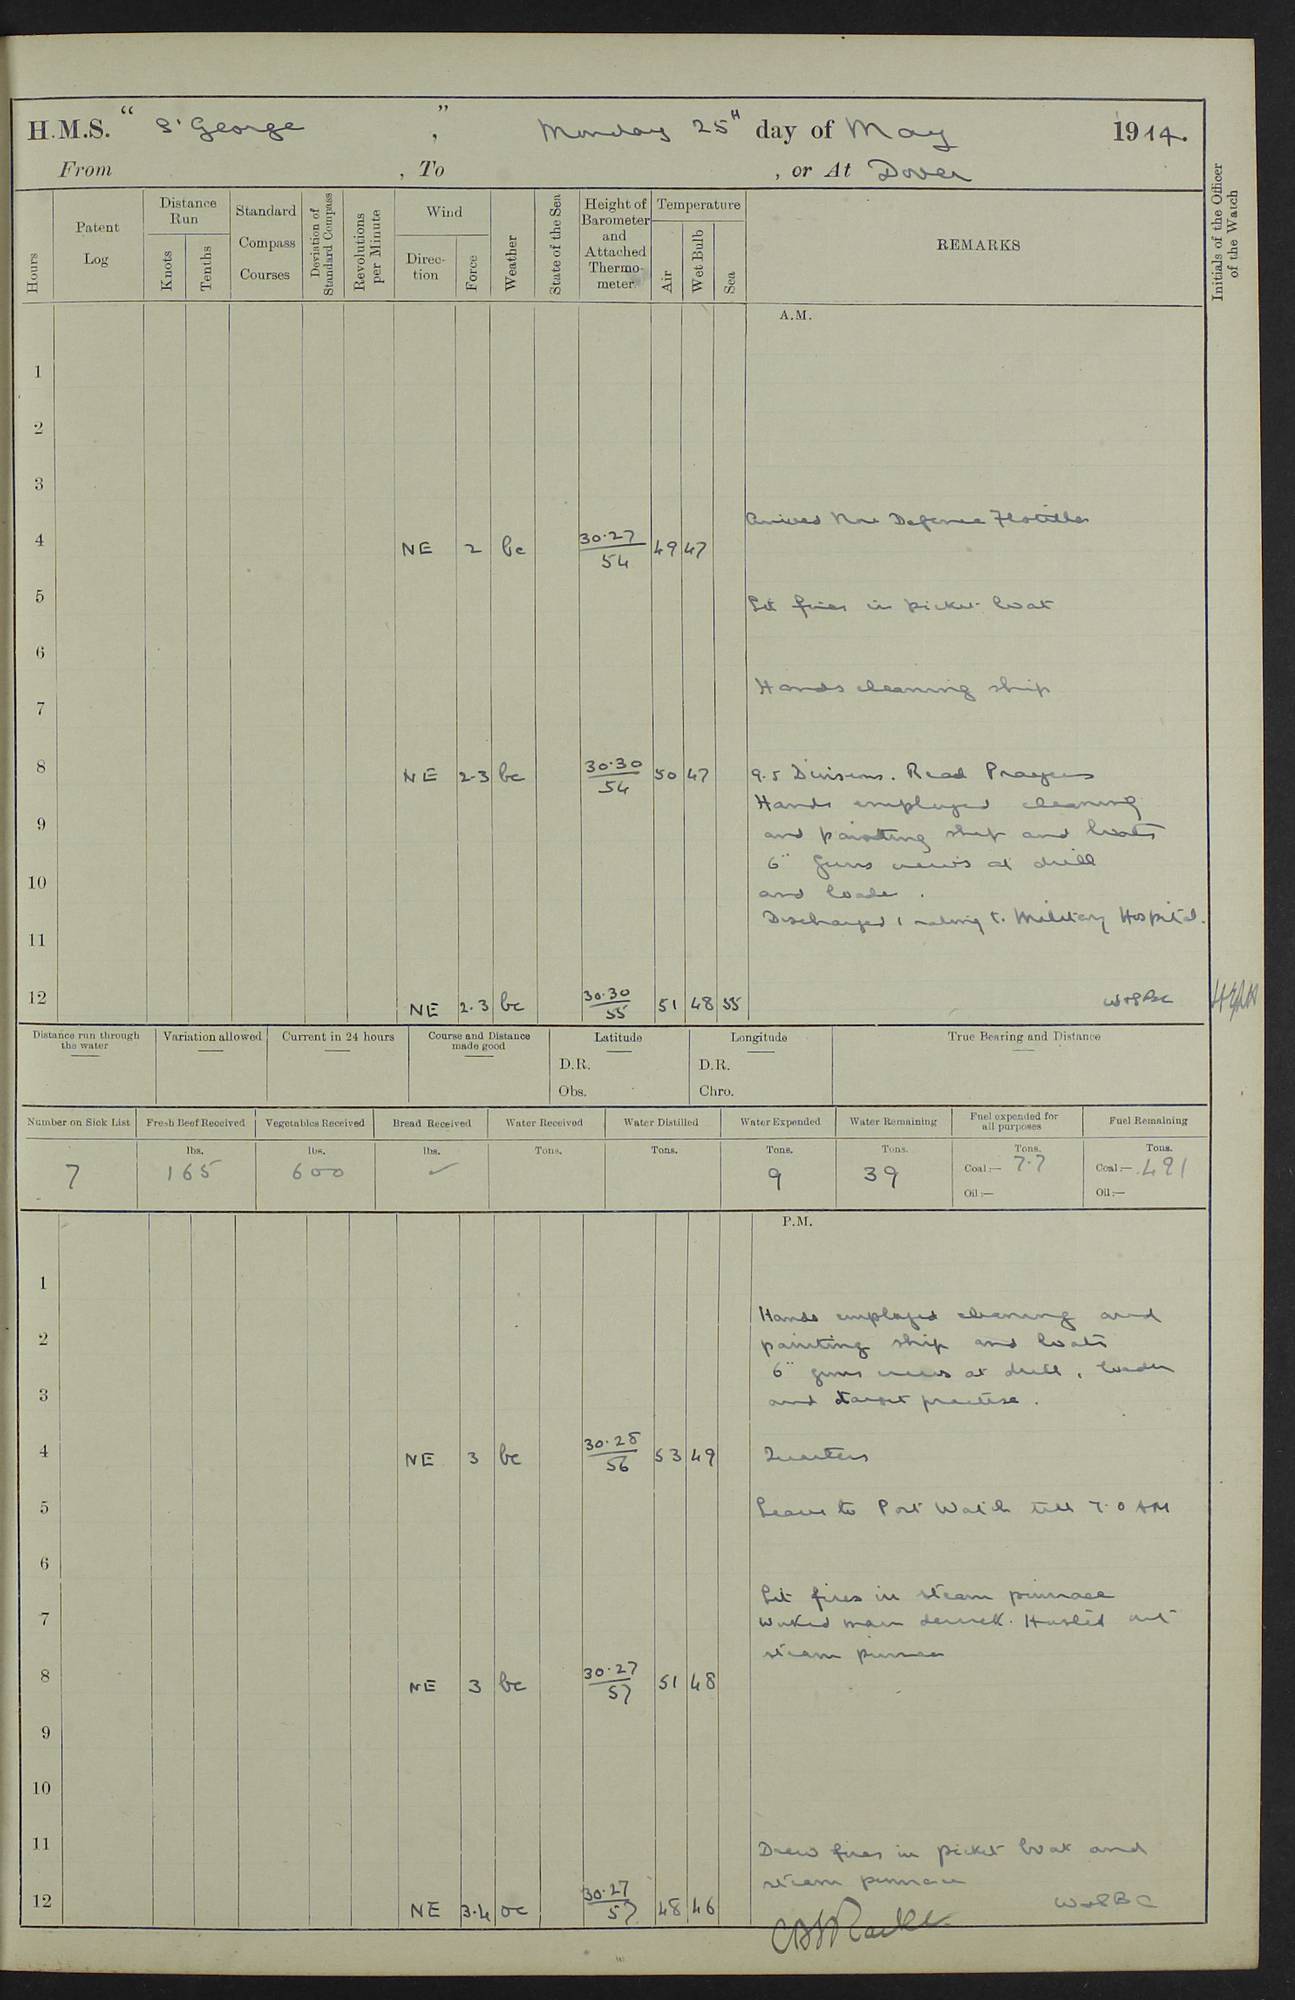 H.M.S. “ St George ”, Monday 25th day of May 1914.
From , To , or At Dover
Hours
Patent Log
Distance Run
Knots
Tenths
Standard Compass Courses
Deviation of Standard Compass
Revolutions per Minute
Wind
Direc-tion
Force
Weather
State of the Sea
Height of Barometer and Attached Thermo-meter
Temperature
Air
Wet Bulb
Sea
REMARKS
Initials of the Officer of the Watch
A.M.
1
2
3
Arrived Nore Defence Flotilla
4 NE 2 bc 30.27/54 49 47
5 Lit fires in picket boat
6
Hands cleaning ship
7
8 NE 2.3 bc 30.30/54 50 47 9.5 Divisions. Read Prayers
Hands employed cleaning
9 and painting ship and boats
6" Guns crews at drill
10 and loader.
Discharged 1 rating to Military Hospital.
11
12 NE 2.3 bc 30.30/55 51 48 55
Distance run through the water
Variation allowed
Current in 24 hours
Course and Distance made good
Latitude
D.R.
Obs.
Longitude
D.R.
Chro.
True Bearing and Distance
Number on Sick List
Fresh Beef Received
Vegetables Received
Bread Received
Water Received
Water Distilled
Water Expended
Water Remaining
Fuel expended for all purposes
Fuel Remaining
lbs. lbs. lbs. Tons. Tons. Tons. Tons. Tons. Tons.
7 165 600 ✓ 9 39 Coal:— 7.7 Coal:— 491
Oil:— Oil:—
P.M.
1
Hands employed cleaning and
2 painting ship and boats
6" guns crews at drill, loader
3 and target practise.
4 NE 3 bc 30.28/56 53 49 Quarters
5 Leave to Port Watch till 7.0 AM
6
Lit fires in steam pinnace
7 Worked main derrick. Hoisted out
steam pinnace
8 NE 3 bc 30.27/57 51 48
9
10
11 Drew fires in picket boat and
steam pinnace
12 NE 3.4 oc 30.27/57 48 46